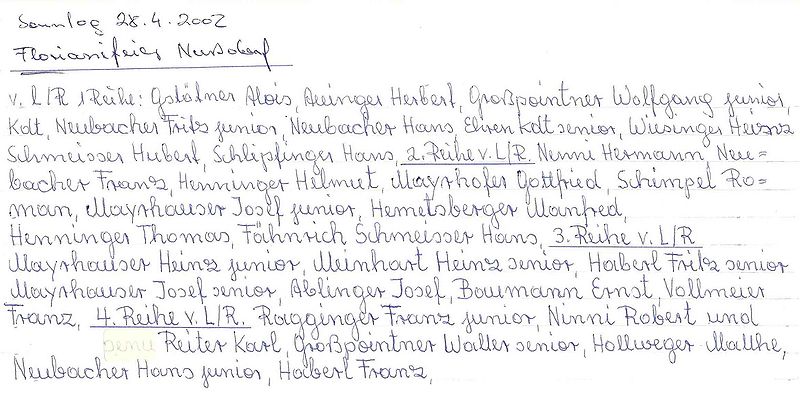 Sonntag 28.4.2002
Florianifeier Nußdorf
v. L/R 1 Reihe: Gstötner Alois, Auinger Herbert, Großpointner Wolfgang junior,
Kdt, Neubacher Fritz junior, Neubacher Hans Ehren Kdt senior, Wiesinger Heinz
Schmeisser Hubert, Schlipfinger Hans, 2. Reihe v. L/R. Nenni Hermann Neu=
bacher Franz, Henninger Helmut, Mayrhofer Gottfried, Schimpel Ro=
man, Mayrhauser Josef junior, Hemetsberger Manfred,
Henninger Thomas, Fähnrich Schmeisser Hans, 3. Reihe v. L/R
Mayrhauser Heinz junior, Meinhart Heinz senior, Haberl Fritz senior
Mayrhauser Josef senior, Ablinger Josef, Baumann Ernst, Vollmeier
Franz, 4. Reihe v. L/R. Ragginger Franz junior, Ninni Robert und
Reiter Karl, Großpointner Walter senior, Hollweger Matthe,
Neubacher Hans junior, Haberl Franz,